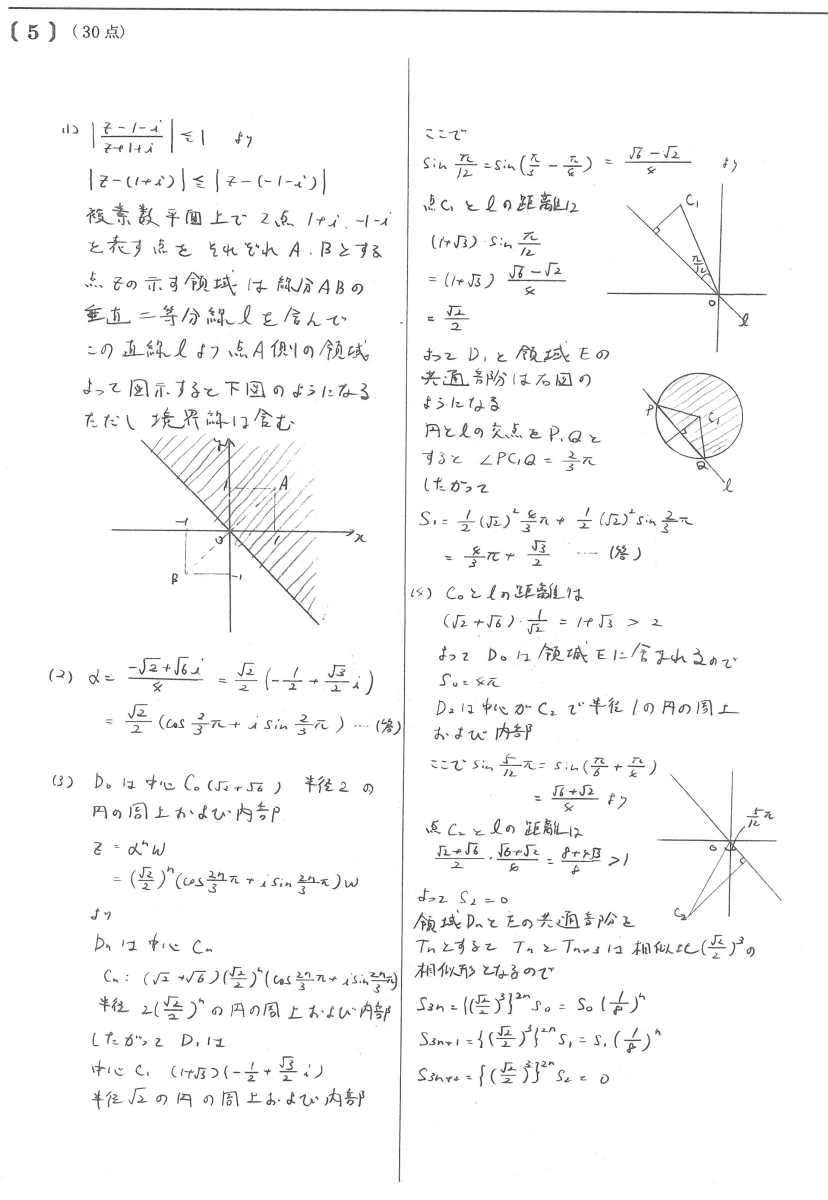 〔 5 〕 ( 30 点)
(1) |(z-1-i)/(z+1+i)| ≦ 1 より
|z-(1+i)| ≦ |z-(-1-i)|
複素数平面上で 2点 1+i, -1-i
を表す点を それぞれ A, Bとする
点zの示す領域は線分ABの
垂直二等分線lを含んで
この直線lより点A側の領域
よって図示すると下図のようになる
ただし 境界線は含む
y
1
A
-1
O
1
x
B
-1
(2) α = (-√2+√6i)/4 = √2/2 (-1/2 + √3/2 i)
= √2/2 (cos 2/3 π + i sin 2/3 π) … (答)
(3) D₀は中心 C₀(√2+√6) 半径2の
円の周上および内部
z = αⁿw
= (√2/2)ⁿ (cos 2n/3 π + i sin 2n/3 π)w
より
Dₙは中心 Cₙ
Cₙ : (√2+√6)(√2/2)ⁿ(cos 2n/3 π + i sin 2n/3 π)
半径 2(√2/2)ⁿ の円の周上および内部
したがって D₁は
中心 C₁ (1+√3)(-1/2 + √3/2 i)
半径√2の円の周上および内部
ここで
sin π/12 = sin(π/3 - π/4) = (√6-√2)/4 より
点C₁とlの距離は
(1+√3)・sin π/12
= (1+√3) (√6-√2)/4
= √2/2
C₁
π/12
O
l
よって D₁と領域Eの
共通部分は右図の
ようになる
円とlの交点をP, Qと
すると ∠PC₁Q = 2/3 π
したがって
P
C₁
Q
l
S₁ = 1/2 (√2)² 4/3 π + 1/2 (√2)² sin 2/3 π
= 4/3 π + √3/2 … (答)
(4) C₀とlの距離は
(√2+√6)・1/√2 = 1+√3 > 2
よって D₀は領域Eに含まれるので
S₀ = 4π
D₂は中心がC₂で半径1の円の周上
および内部
ここで sin 5/12 π = sin(π/6 + π/4)
= (√6+√2)/4 より
点C₂とlの距離は
(√2+√6)/2・(√6+√2)/4 = (8+4√3)/8 > 1
O
5/12 π
C₂
よって S₂ = 0
領域DₙとEの共通部分を
Tₙとすると TₙとTₙ₊₃は相似比(√2/2)³の
相似形となるので
S₃ₙ = {(√2/2)³}²ⁿ S₀ = S₀ (1/8)ⁿ
S₃ₙ₊₁ = {(√2/2)³}²ⁿ S₁ = S₁ (1/8)ⁿ
S₃ₙ₊₂ = {(√2/2)³}²ⁿ S₂ = 0